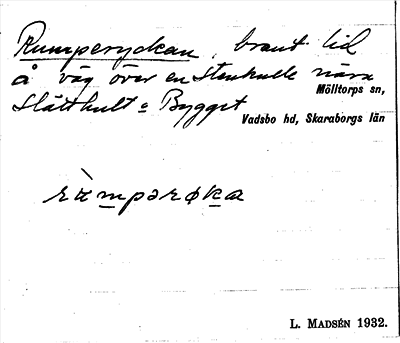 Rumperyckan, brant lid
å väg över en stenkulle nära
Mölltorps sn,
Slätthult o Bygget
Vadsbo hd, Skaraborgs län
rumpərøka
L. MADSÉN 1932.